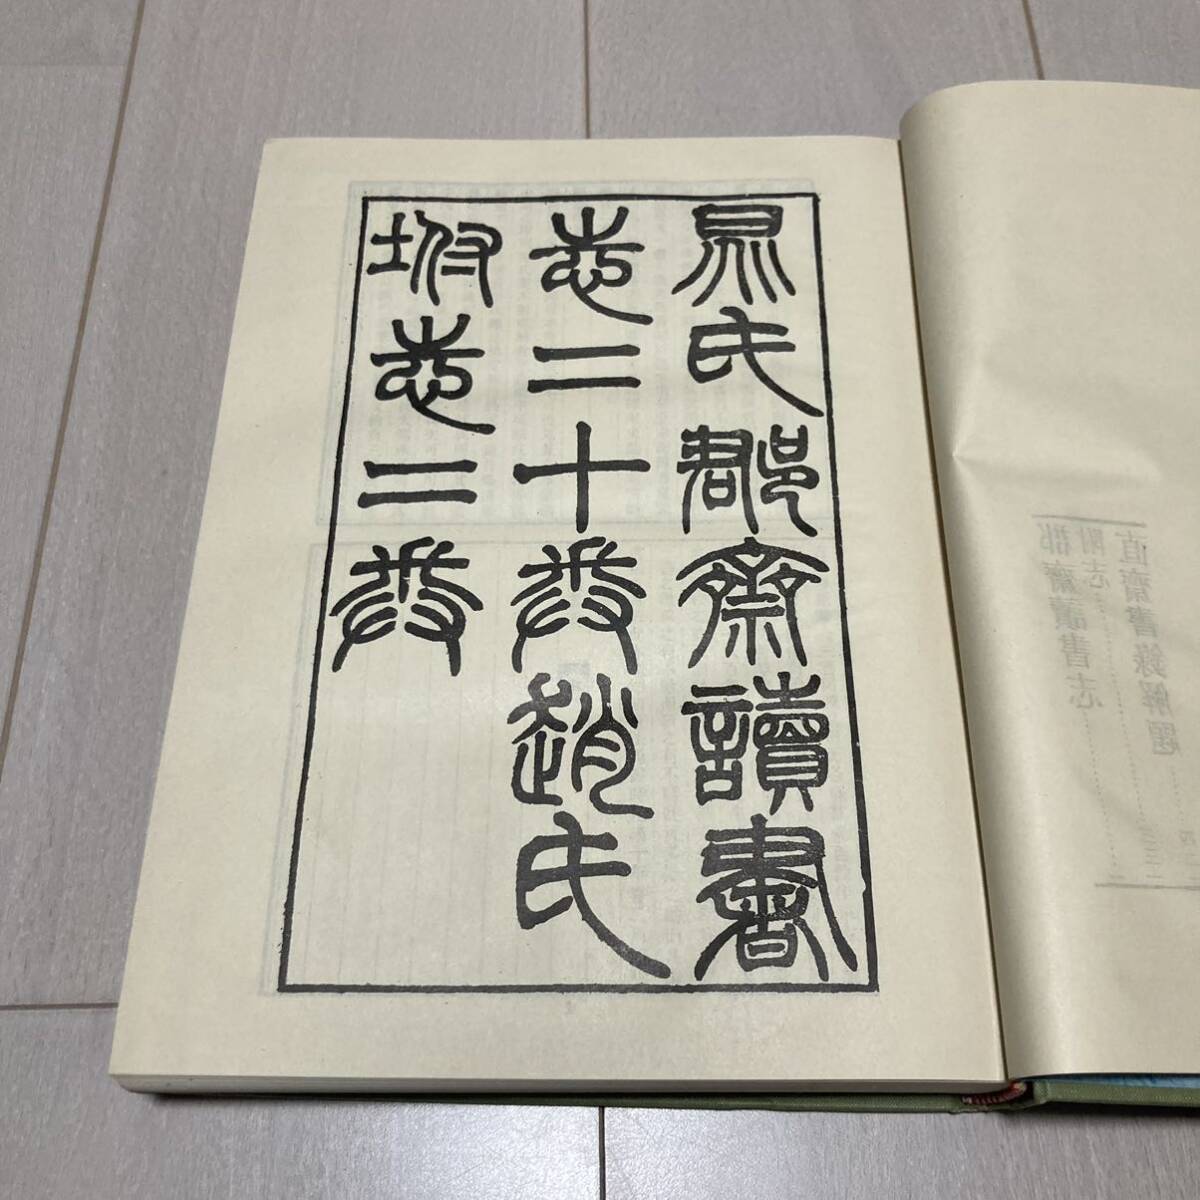 晁氏郡齋讀書
志二十卷趙氏
坿志二卷
郡齋讀書志
附志
直齋書錄解題